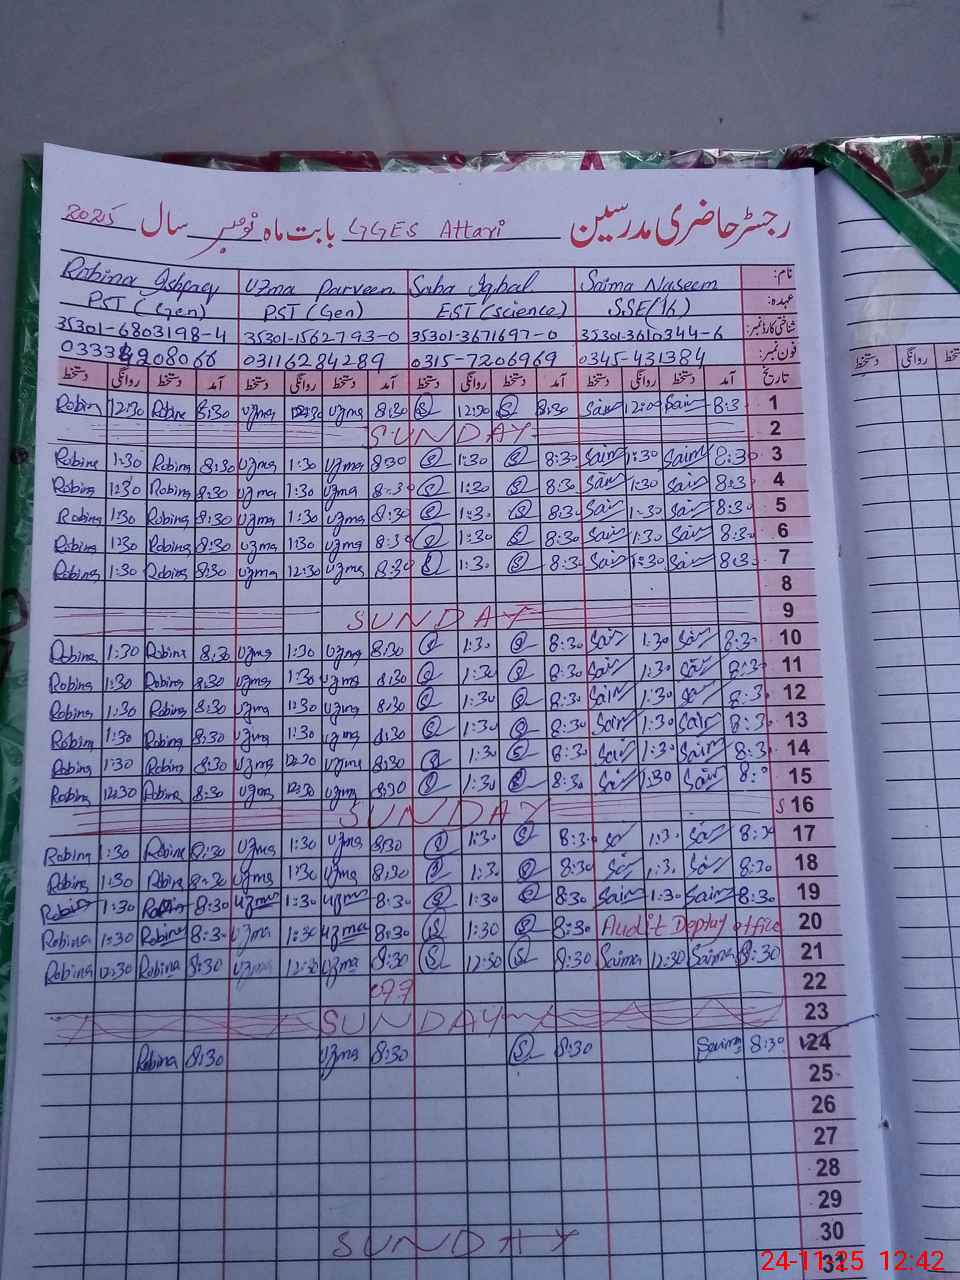 رجسٹر حاضری مدرسین GGES Attari بابت ماہ نومبر سال 2025
نام: Saima Naseem Saba Iqbal Uzma Parveen Robina Ishfaq
عہدہ: SSE(16) EST(science) PST(Gen) PST(Gen)
شناختی کارڈ نمبر: 35301-3610344-6 35301-3671697-0 35301-1562793-0 35301-6803198-4
فون نمبر: 0345-431384 0315-7206969 03116284289
تاریخ آمد دستخط روانگی دستخط آمد دستخط روانگی دستخط آمد دستخط روانگی دستخط آمد دستخط روانگی دستخط
دستخط روانگی دستخط
Robina 12:30 Robina 8:30 Uzma 12:30 Uzma 8:30 S 12:30 S 8:30 Saim Saim 8:3 1
SUNDAY 2
Robina 1:30 Robina 8:30 Uzma 1:30 Uzma 8:30 S 1:30 S 8:30 Saim 1:30 Saim 8:30 3
Robina 1:30 Robina 8:30 Uzma 1:30 Uzma 8:30 S 1:30 S 8:30 Saim 1:30 Saim 8:3 4
Robina 1:30 Robina 8:30 Uzma 1:30 Uzma 8:30 S 1:30 S 8:30 Saim 1:30 Saim 8:30 5
Robina 1:30 Robina 8:30 Uzma 1:30 Uzma 8:30 S 1:30 S 8:30 Saim 1:30 Saim 8:30 6
Robina 1:30 Robina 8:30 Uzma 12:30 Uzma 8:30 S 1:30 S 8:30 Saim 1:30 Saim 8:30 7
8
SUNDAY 9
Robina 1:30 Robina 8:30 Uzma 1:30 Uzma 8:30 S 1:30 S 8:30 Saim 1:30 Saim 8:30 10
Robina 1:30 Robina 8:30 Uzma 1:30 Uzma 8:30 S 1:30 S 8:30 Saim 1:30 Saim 8:30 11
Robina 1:30 Robina 8:30 Uzma 1:30 Uzma 8:30 S 1:30 S 8:30 Saim 1:30 Saim 8:30 12
Robina 1:30 Robina 8:30 Uzma 1:30 Uzma 8:30 S 1:30 S 8:30 Saim 1:30 Saim 8:30 13
Robina 1:30 Robina 8:30 Uzma Uzma 8:30 S 1:30 S 8:30 Saim 1:30 Saim 8:30 14
Robina 12:30 Robina 8:30 Uzma 12:30 Uzma 8:30 S 1:30 S 8:30 Saim 1:30 Saim 15
SUNDAY S 16
Robina 1:30 Robina 8:30 Uzma 1:30 Uzma 8:30 S 1:30 S 8:30 Sai 1:30 Sai 8:30 17
Robina 1:30 Robina 8:30 Uzma 1:30 Uzma 8:30 S 1:30 S 8:30 Sai 1:30 Sai 8:30 18
Robina 1:30 Robina 8:30 Uzma 1:30 Uzma 8:30 S 1:30 S 8:30 Saim 1:30 Saim 8:30 19
Robina 1:30 Robina 8:30 Uzma 1:30 Uzma 8:30 S 1:30 S 8:30 Audit Deptuy office 20
Robina 12:30 Robina 8:30 Uzma 12:30 Uzma 8:30 S 12:30 S 8:30 Saima 12:30 Saima 8:30 21
22
SUNDAY 23
Robina 8:30 Uzma 8:30 S 8:30 Saima 8:30 24
25
26
27
28
29
SUNDAY 30
31
24-11-25 12:42